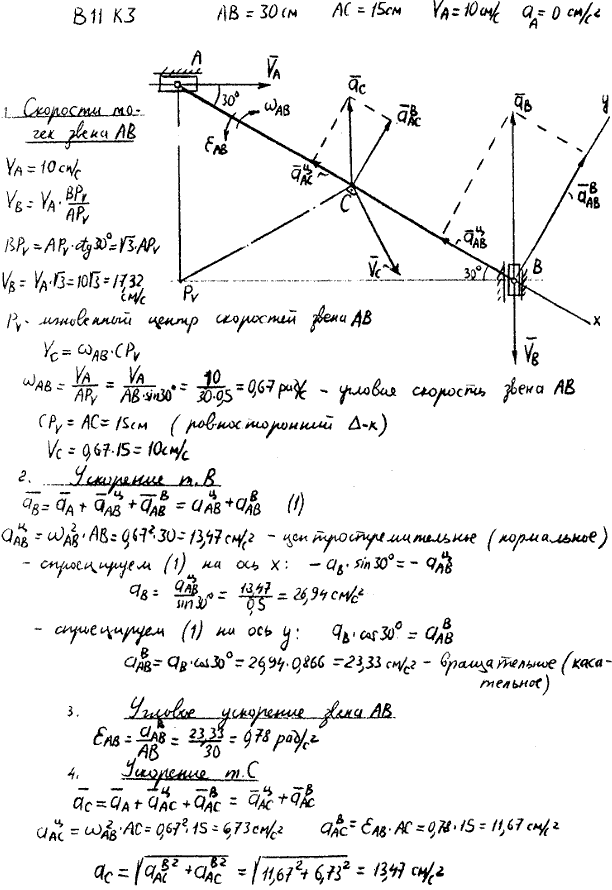 В11 К3 AB = 30 см AC = 15 см V_A = 10 см/с a_A = 0 см/с²
A V̄_A 30° ω_AB ε_AB
ā_C ā_AC^В ā_AC^Ц C V̄_C
ā_B y ā_AB^В ā_AB^Ц 30° B x V̄_B
P_V
1. Скорости то-
чек звена AB
V_A = 10 см/с
V_B = V_A · BP_V/AP_V
BP_V = AP_V · ctg30° = √3·AP_V
V_B = V_A·√3 = 10√3 = 17,32 см/с
P_V - мгновенный центр скоростей звена AB
V_C = ω_AB · CP_V
ω_AB = V_A/AP_V = V_A/(AB·sin30°) = 10/(30·0,5) = 0,67 рад/с - угловая скорость звена AB
CP_V = AC = 15 см (равносторонний Δ-к)
V_C = 0,67·15 = 10 см/с
2. Ускорение т. B
ā_B = ā_A + ā_AB^Ц + ā_AB^В = a_AB^Ц + a_AB^В (1)
a_AB^Ц = ω_AB² · AB = 0,67²·30 = 13,47 см/с² - центростремительное (нормальное)
- спроецируем (1) на ось x: - a_B · sin30° = - a_AB^Ц
a_B = a_AB^Ц/sin30° = 13,47/0,5 = 26,94 см/с²
- спроецируем (1) на ось y: a_B · cos30° = a_AB^В
a_AB^В = a_B · cos30° = 26,94 · 0,866 = 23,33 см/с² - вращательное (каса-
тельное)
3. Угловое ускорение звена AB
ε_AB = a_AB^В/AB = 23,33/30 = 0,78 рад/с²
4. Ускорение т. C
ā_C = ā_A + ā_AC^Ц + ā_AC^В = ā_AC^Ц + ā_AC^В
a_AC^Ц = ω_AB² · AC = 0,67²·15 = 6,73 см/с² a_AC^В = ε_AB · AC = 0,78·15 = 11,67 см/с²
a_C = √(a_AC^В² + a_AC^В²) = √(11,67² + 6,73²) = 13,47 см/с²